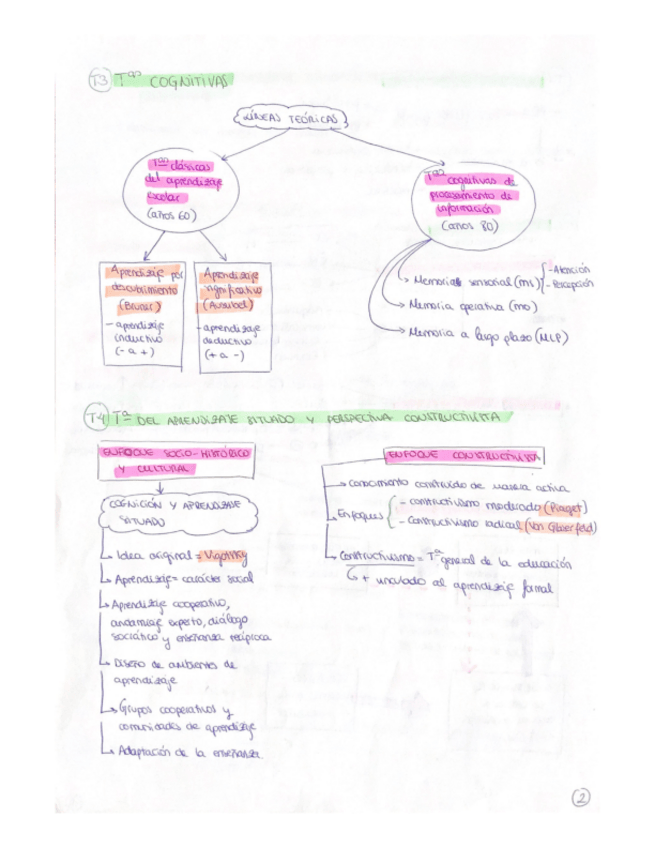 T3 Tªˢ COGNITIVAS
LÍNEAS TEÓRICAS
Tªˢ clásicas
del aprendizaje
escolar
(años 60)
Tªˢ cognitivas de
procesamiento de
información
(años 80)
Aprendizaje por
descubrimiento
(Bruner)
- aprendizaje
inductivo
(- a +)
Aprendizaje
significativo
(Ausubel)
- aprendizaje
deductivo
(+ a -)
Memoria sensorial (ms)
- Atención
- Percepción
Memoria operativa (mo)
Memoria a largo plazo (MLP)
T4 Tª DEL APRENDIZAJE SITUADO Y PERSPECTIVA CONSTRUCTIVISTA
ENFOQUE SOCIO-HISTÓRICO
Y CULTURAL
COGNICIÓN Y APRENDIZAJE
SITUADO
Idea original = Vigotsky
Aprendizaje = carácter social
Aprendizaje cooperativo,
andamiaje experto, diálogo
socrático y enseñanza recíproca
Diseño de ambientes de
aprendizaje
Grupos cooperativos y
comunidades de aprendizaje
Adaptación de la enseñanza
ENFOQUE CONSTRUCTIVISTA
Conocimiento construido de manera activa
Enfoques
- constructivismo moderado (Piaget)
- constructivismo radical (Von Glaserfeld)
Constructivismo = Tª general de la educación
+ vinculado al aprendizaje formal
2